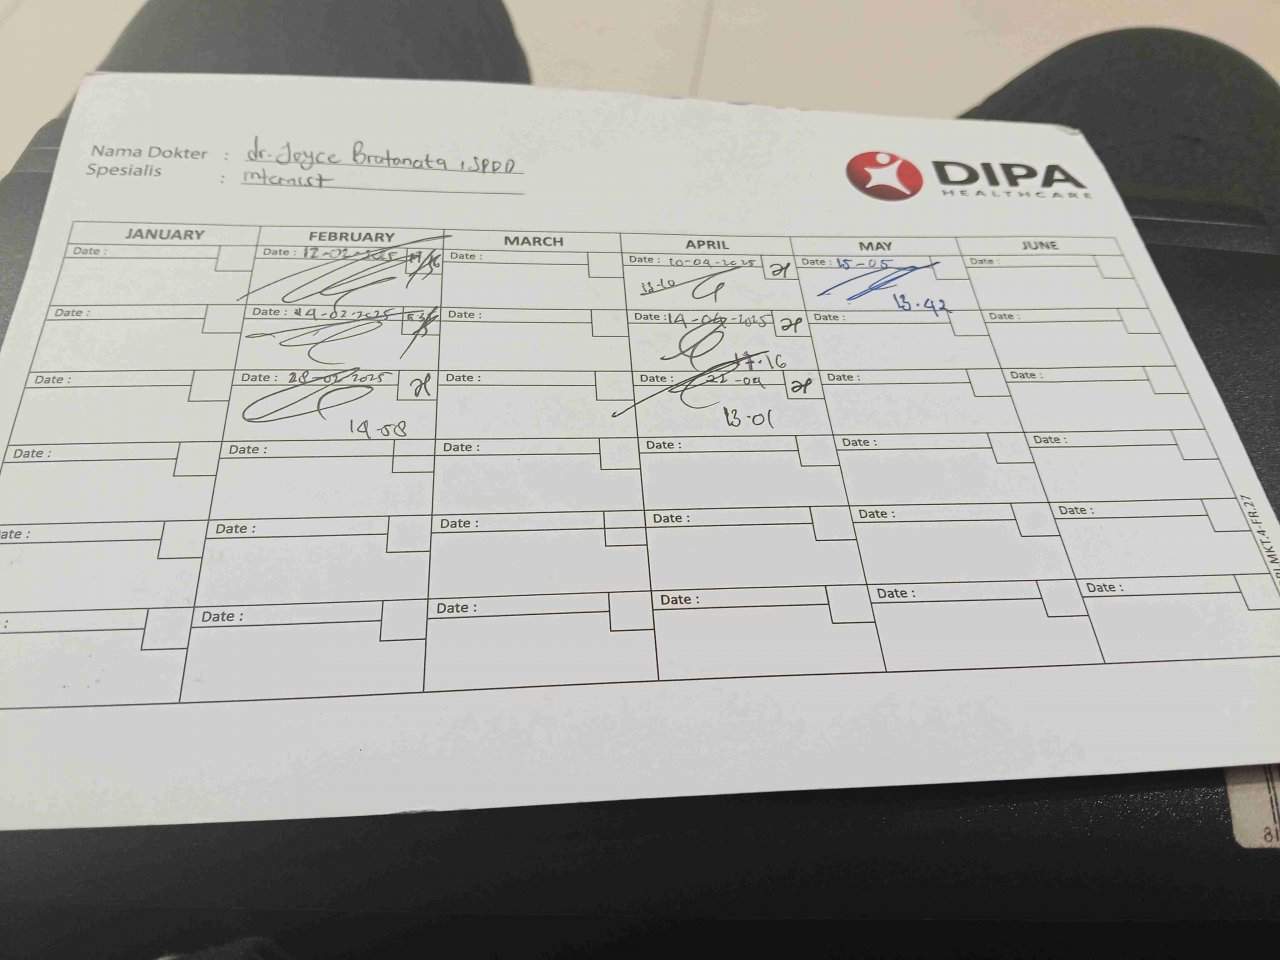 Nama Dokter : dr. Joyce Bratanata, SPPD
Spesialis : Internist
DIPA
HEALTHCARE
JANUARY FEBRUARY MARCH APRIL MAY JUNE
Date : Date : 12-02-2025 Date : Date : 10-04-2025 Date : 15-05 Date :
13-10 13.42
Date : Date : 14-02-2025 Date : Date : 14-04-2025 Date : Date :
17.16
Date : Date : 28-02-2025 Date : Date : 22-04 Date : Date :
14-58 13-01
Date : Date : Date : Date : Date : Date :
ate : Date : Date : Date : Date : Date :
: Date : Date : Date : Date : Date :
MKT.4-FR.27
81